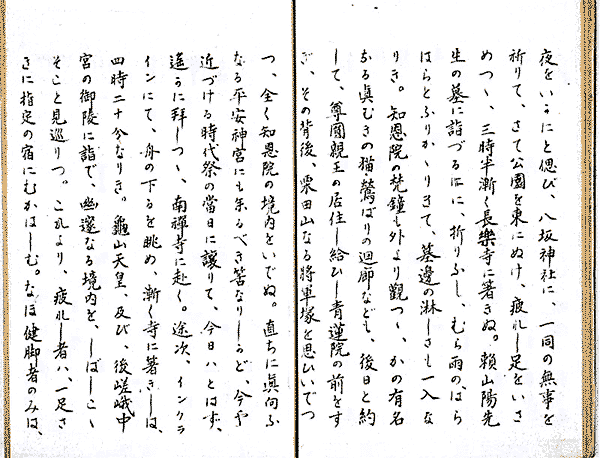 夜をいかにと偲び、八坂神社に、一同の無事を
祈りて、さて公園を東にぬけ、疲れし足をいさ
めつゝ、三時半漸く長樂寺に着きぬ。頼山陽先
生の墓に詣づるほに、折りふし、むら雨のはら
はらとふりかゝりきて、墓邊の淋しさも一入な
りき。知恩院の梵鐘も外より觀つゝ、かの有名
なる眞むきの猫鶯ばりの迴廊なども、後日と約
して、尊圓親王の居住し給ひし青蓮院の前をす
ぎ、その背後、粟田山なる將軍塚を思ひいでつ
つ、全く知恩院の境内をいでぬ。直ちに眞向ふ
なる平安神宮にも参るべき筈なりしかど、今や
近づける時代祭の當日に讓りて、今日ハとはず、
遥かに拜しつゝ、南禪寺に赴く。途次、インクラ
インにて、舟の下るを眺め、漸く寺に着きしは、
四時二十分なりき。龜山天皇、及び、後嵯峨中
宮の御陵に詣で、幽邃なる境内を、しばしこゝ
そこと見巡りつ。これより、疲れし者ハ、一足さ
きに指定の宿にむかはしむ。なほ健脚者のみは、